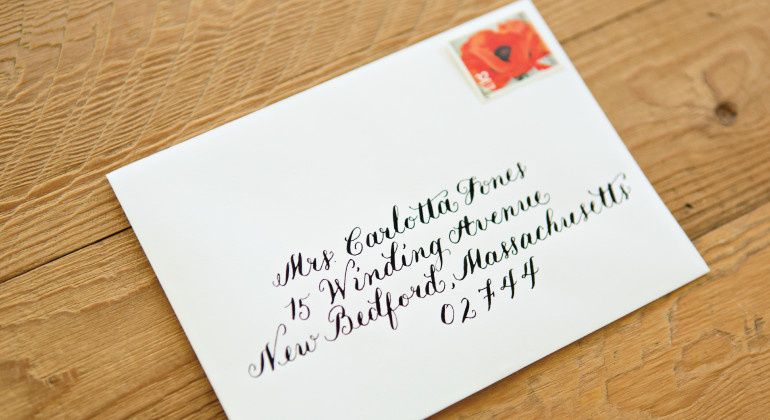 Mrs Carlotta Jones
15 Winding Avenue
New Bedford, Massachusetts
02744